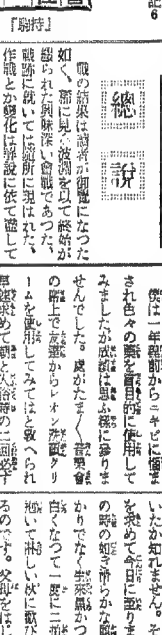 記6
『駒持』
總說
戰の結果は讀者が御覽になつた
如く、稀に見る波瀾を以て終始が
綴られた興味深い會戰であつた、
戰跡に就いては隨所に現はれた、
作戰とか變化は解說に依て盡して
僕は一年程前からニキビに惱ま
され色々の藥を盲目的に使用して
みましたが成績は思ふ樣に參りま
せんでした。處がたまく音樂會
の席上で友達からレオン洗顏クリ
ームを使用してみてはと敎へられ
早速求めて朝と入浴時の二回必ず
いたか知れません。
を求めて今日に至りま
の時の如き滑らかな
かりでなく生來黑かつ
白くなつて一度に二
泡いて淋しい秋に歡び
るのです。父母をはじ